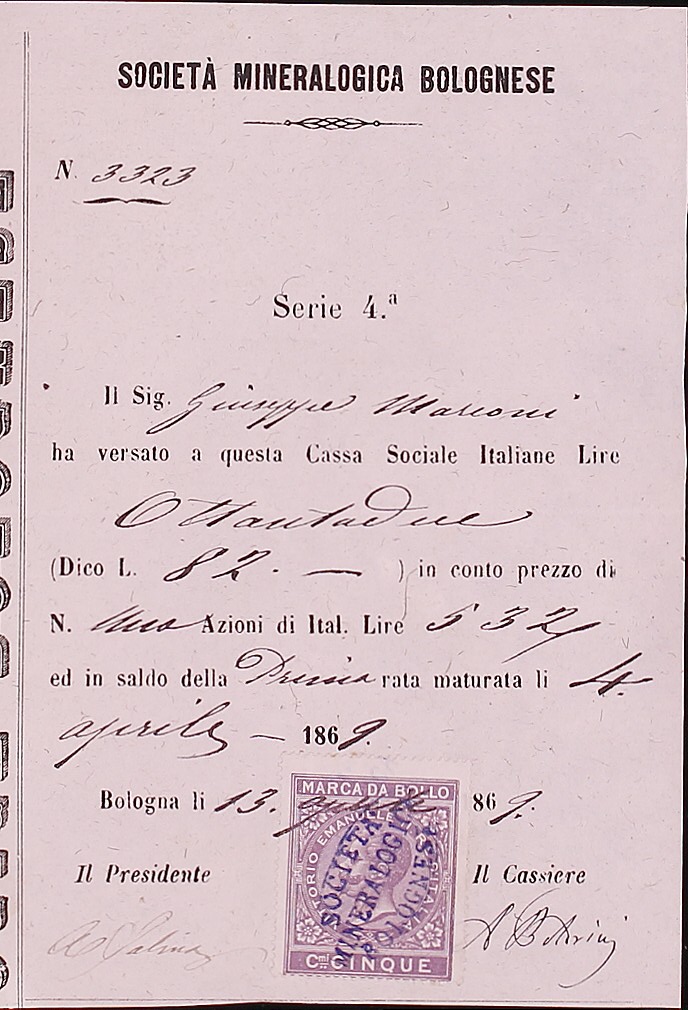 SOCIETÀ MINERALOGICA BOLOGNESE
N. 3323
Serie 4.ª
Il Sig. Giuseppe Marconi
ha versato a questa Cassa Sociale Italiane Lire
Ottantadue
(Dico L. 82. — ) in conto prezzo di
N. Una Azioni di Ital. Lire 532
ed in saldo della Prima rata maturata li 4.
aprile — 1869.
MARCA DA BOLLO
Bologna li 13. aprile 869.
SOCIETÀ
MINERALOGICA
BOLOGNESE
Il Presidente Il Cassiere
Cmi CINQUE